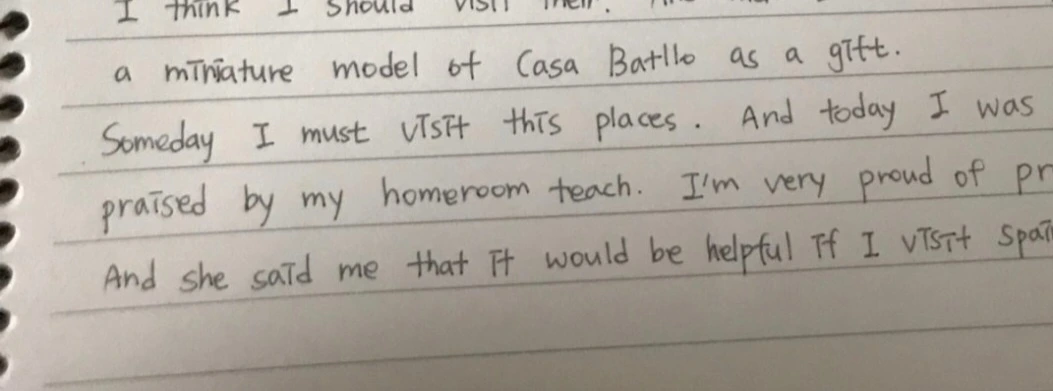 I think I should visit
a miniature model of Casa Batllo as a gift.
Someday I must visit this places. And today I was
praised by my homeroom teach. I'm very proud of
And she said me that it would be helpful if I visit